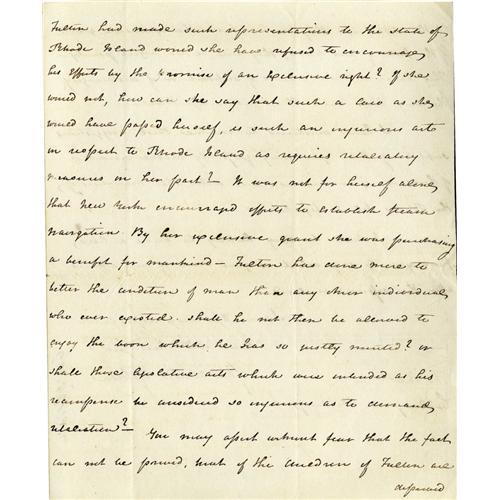 Fulton had made such representations to the state of
Rhode Island would she have refused to encourage
his efforts by the promise of an exclusive right? If she
would not, how can she say that such a law as she
would have passed herself, is such an injurious act
in respect to Rhode Island as requires retaliatory
measures on her part? — It was not for herself alone
that New York encouraged efforts to establish steam
navigation. By her exclusive grant she was purchasing
a benefit for mankind — Fulton has done more to
better the condition of man than any other individual
who ever existed. shall he not then be allowed to
enjoy the boon which he has so justly merited? or
shall those legislative acts which were intended as his
recompense be considered so injurious as to demand
retaliation? — You may assert without fear that the fact
can not be proved, that if the children of Fulton are
deprived